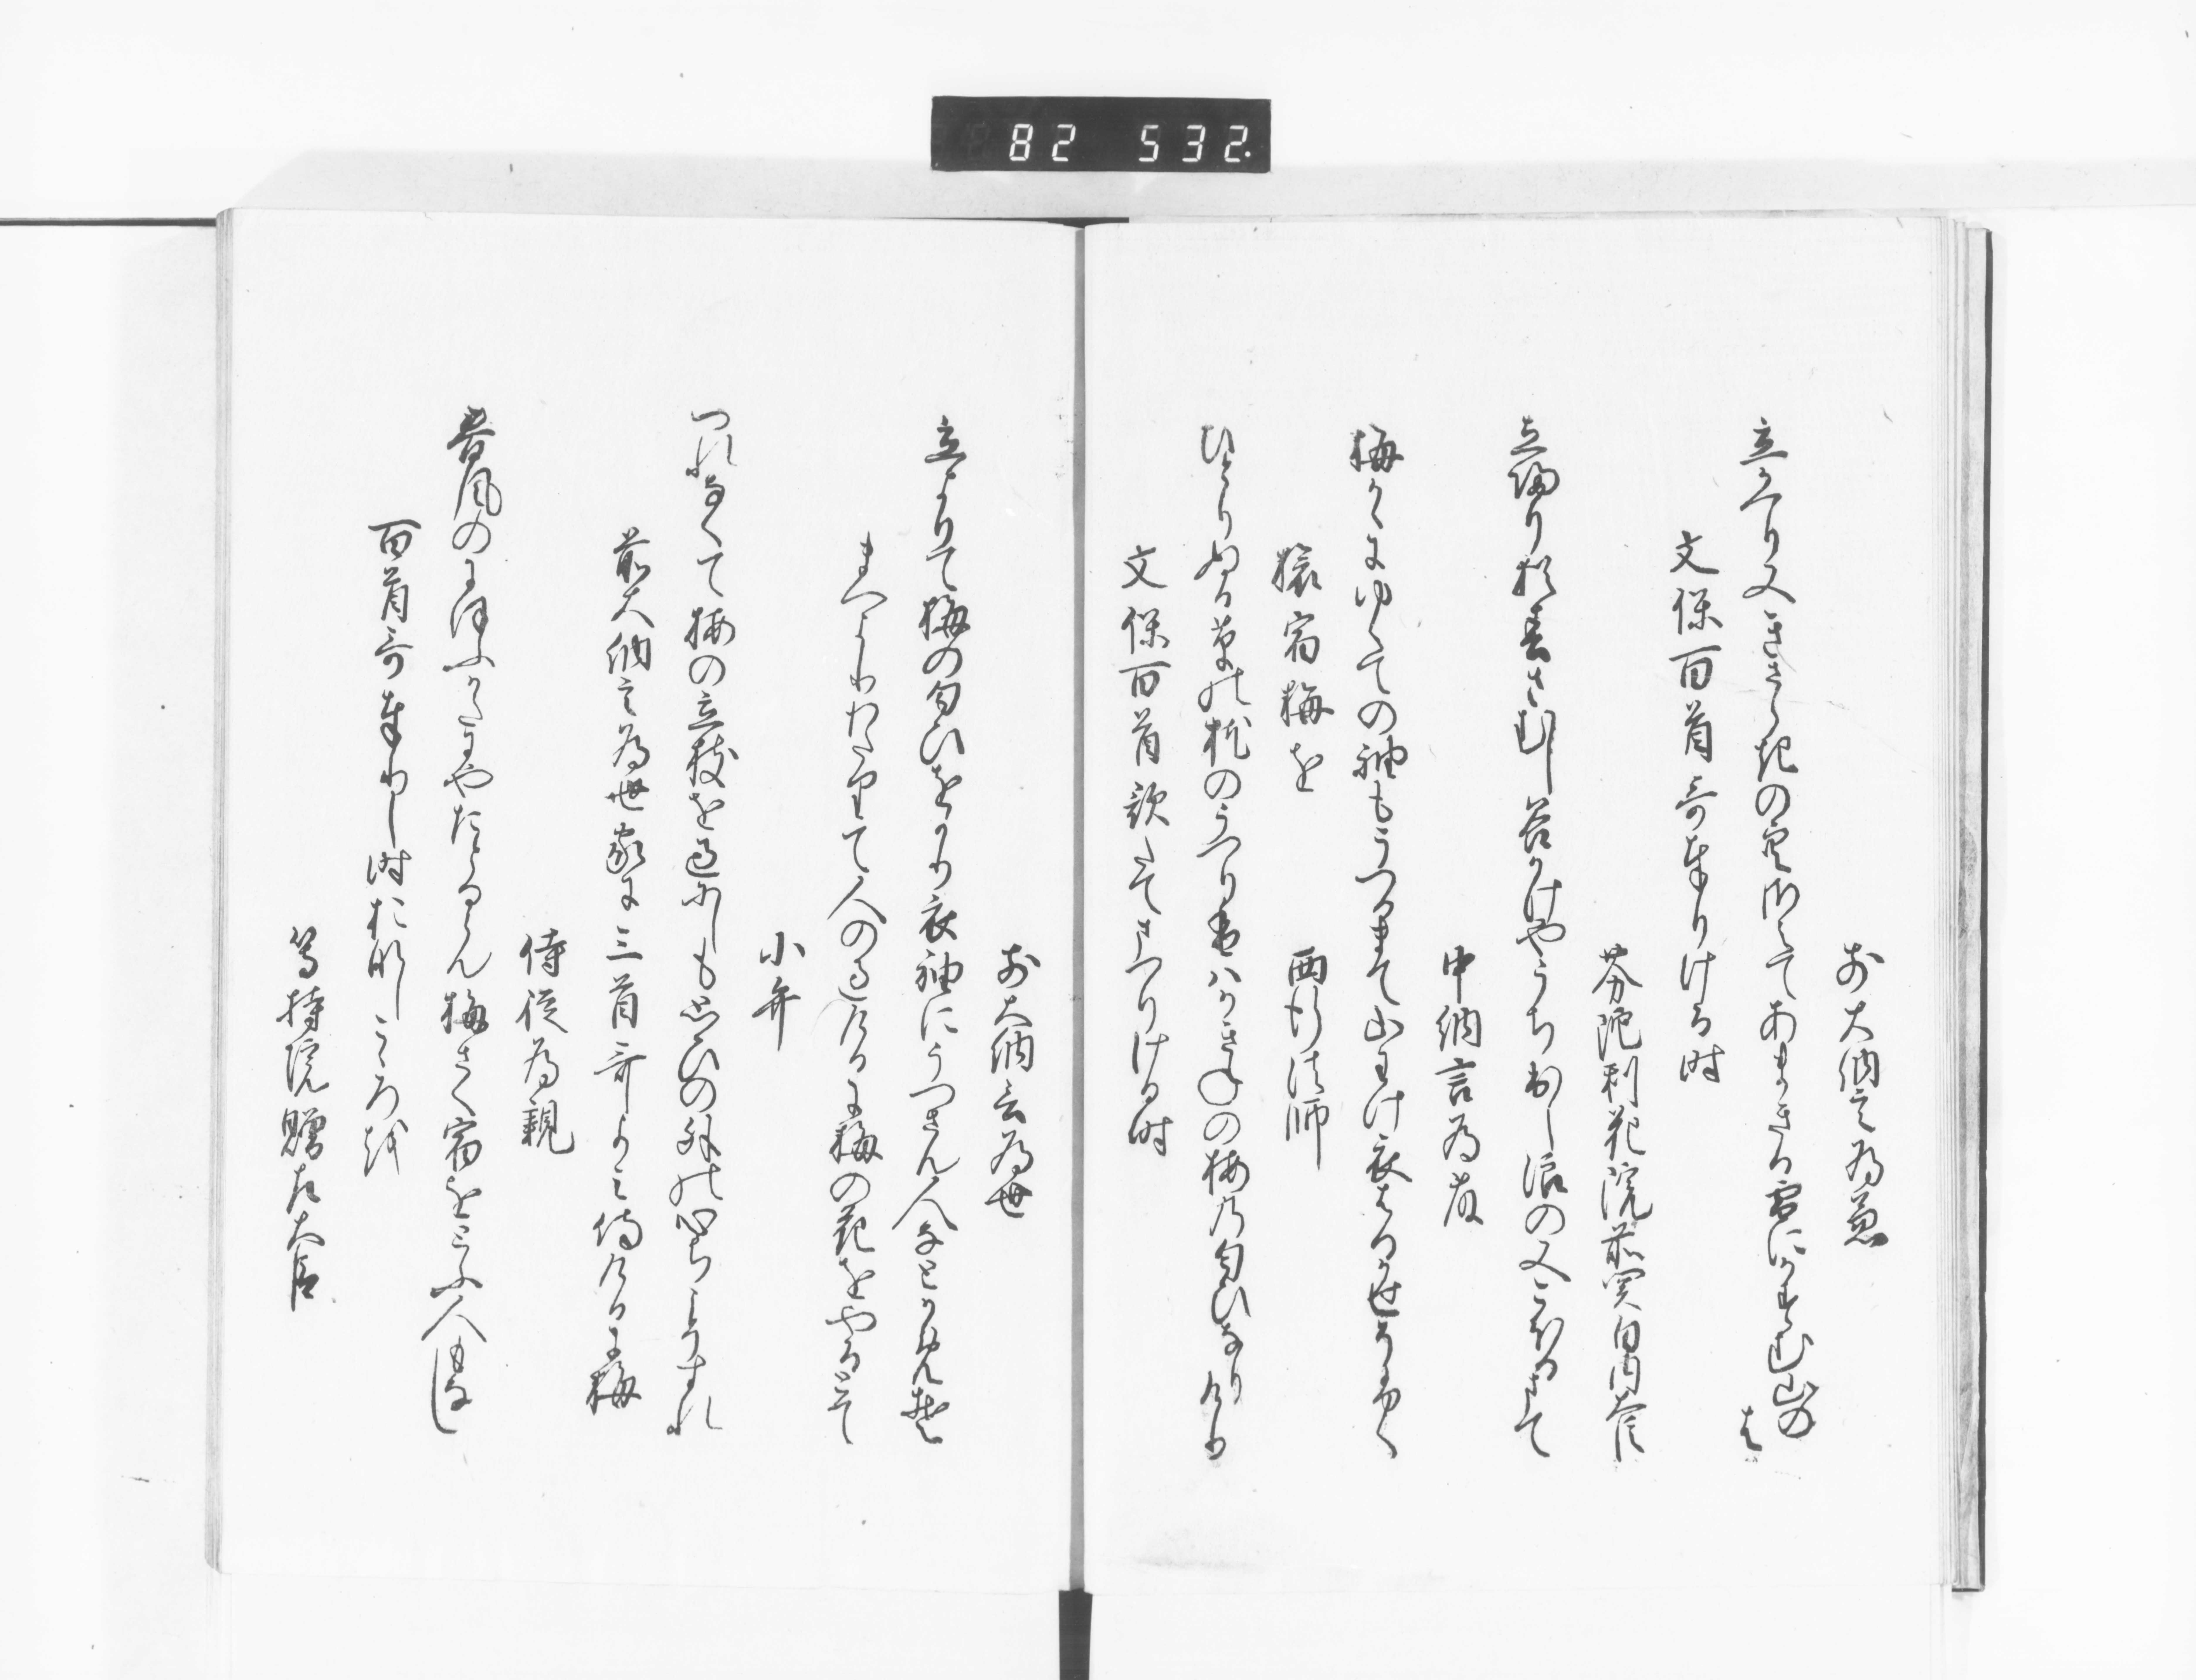 82 532.
前大納言為兼
立かへり又きさらきの空さえてあまきる雪にかすむ山のは
文保百首哥奉りける時
芬陀利花院前関白内大臣
立帰り猶春さむし谷かけやうち出し浪の又こほるまて
中納言為藤
梅かゝにゆくての袖もうつるまて山わけ衣はるかせそ吹く
旅宿梅を
西行法師
ひとりぬる草の枕のうつり香はかきねの梅の匂ひなりけり
文保百首歌たてまつりける時
前大納言為世
立よりて梅の匂ひをかり衣袖にうつさん人なとかめそ
まへよりわたりて人の過けるに梅の花をやるとて
小弁
つれなくて梅の立枝を過にしも思ひの外の心ちこそすれ
前大納言為世家に三首哥よみ侍けるに梅
侍従為親
春風のにほふかたにやたとるらん梅さく宿をとふ人もなし
百首哥奉りし時おなしこゝろを
等持院贈左大臣